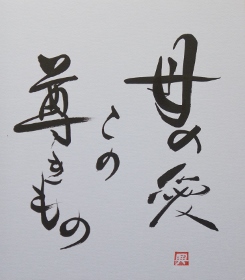 母の愛
この
尊きもの